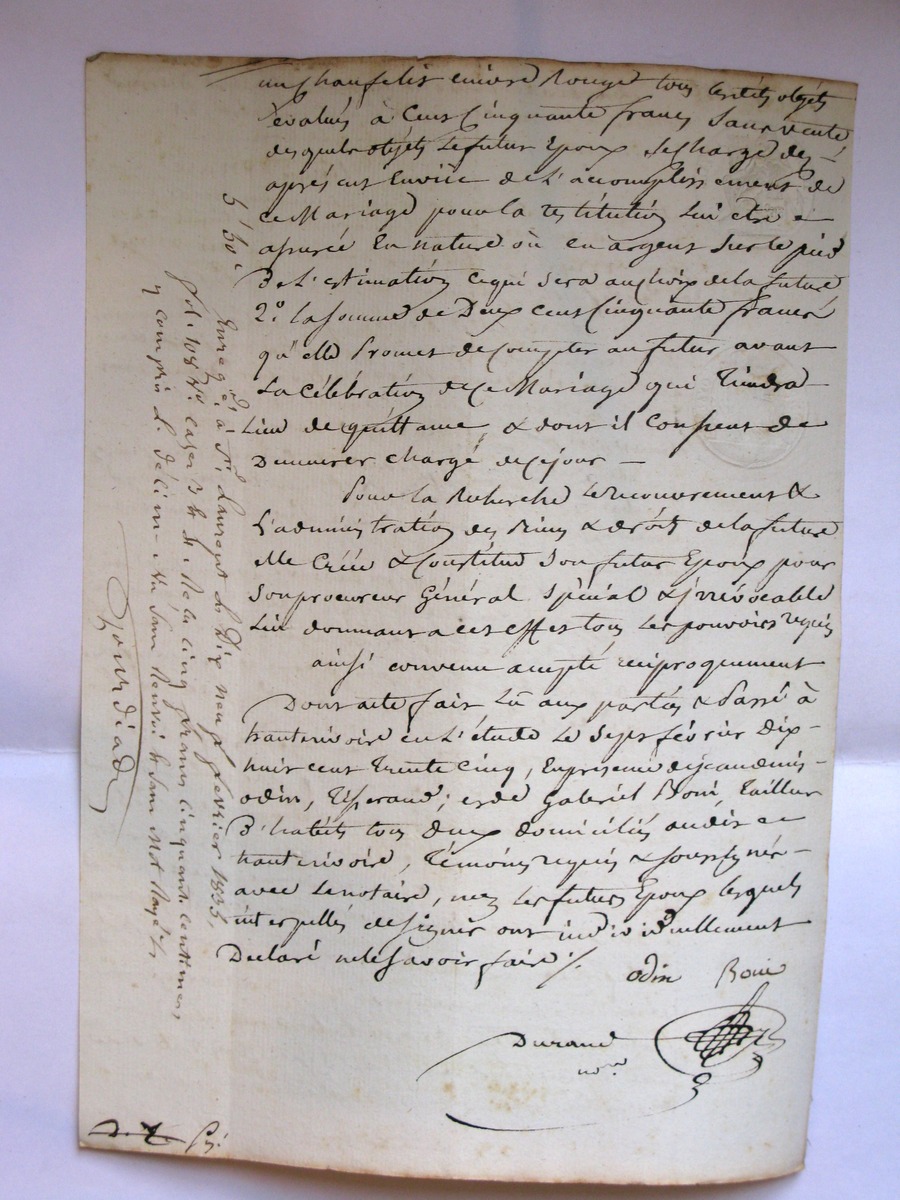 un chaufelit cuivre Rouge tous lesdits objets
évalués à Cent Cinquante francs Sans vente
desquels objets le futur Epoux se charge dez-
aprés cet Envüe de L'accomplissement de
ce Mariage pour la restitution lui être
assurée En nature où en argent sur le pied
De L'estimation ce qui sera au choix de la future
2.º la somme de Deux cent Cinquante francs
qu'elle Promet de Compter au futur avant
La Célébration de ce Mariage qui Tiendra
Lieu de quittance, & dont il Consent de
Demeurer chargé de ce jour —
Pour la Recherche le recouvrement &
L'administration des Biens & droits de la future
elle Créée & Constitue son futur Epoux pour
son procureur Général Spécial & jrrévocable
Lui donnant a cet effet tous les pouvoirs requis
ainsi convenu accepté réciproquement
Dont acte fait Lû aux parties & Passé à
hauterivoire en L'étude Le Sept février Dix-
huit cent Trente Cinq, En présence de jean denis-
odin, Tisserand; et de Gabriel Boni, Tailleur
D'habits tous deux domiciliés audit
hauterivoire, Témoins requis & soussignés-
avec Le notaire, non Les futurs Epoux lesquels
interpellés de signer ont individuellement
Declaré ne le savoir faire ./.
odin Boni
Durand
nore
5 50 c
Enregé. à St. Laurent le Dix neuf février 1835,
fol. 108 Vº. cases 3 & 4. Reçu cinq francs cinquante centimes,
y compris le décime. Un Sans Renvoi & sans Mot Rayé ./.